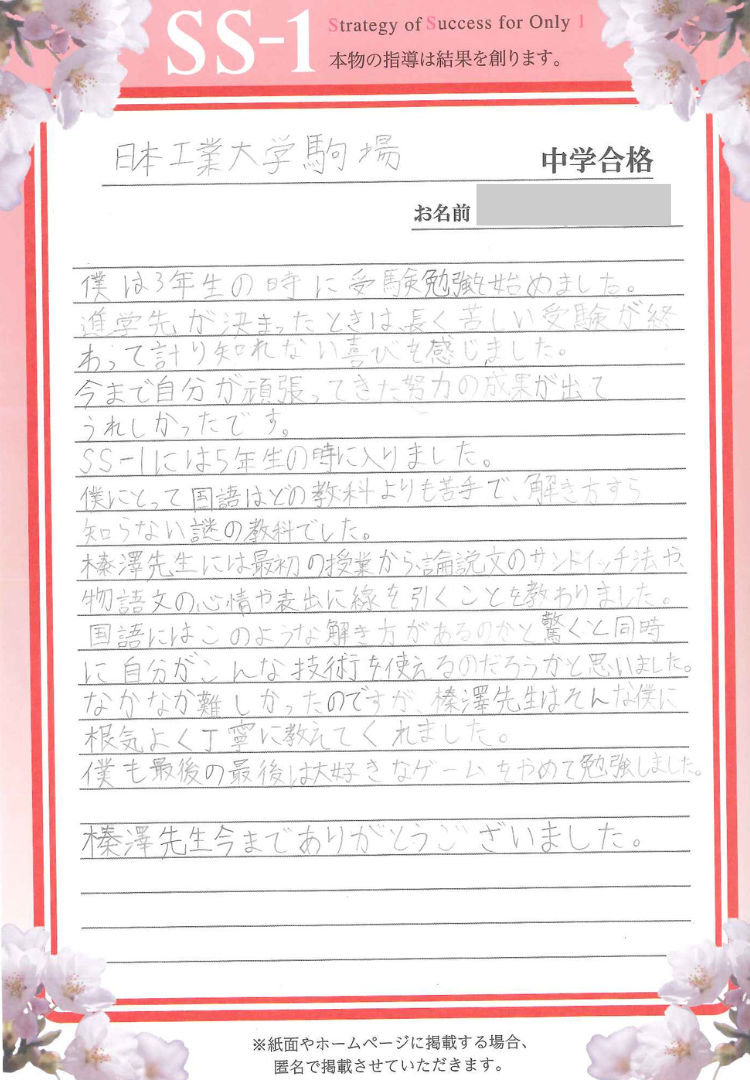 SS-1
Strategy of Success for Only 1
本物の指導は結果を創ります。
日本工業大学駒場 中学合格
お名前
僕は3年生の時に受験勉強を始めました。
進学先が決まったときは、長く苦しい受験が終
わって計り知れない喜びを感じました。
今まで自分が頑張ってきた努力の成果が出て
うれしかったです。
SS-1には5年生の時に入りました。
僕にとって国語はどの教科よりも苦手で、解き方すら
知らない謎の教科でした。
榛澤先生には最初の授業から、論説文のサンドイッチ法や、
物語文の心情や表出に線を引くことを教わりました。
国語にはこのような解き方があるのかと驚くと同時
に自分がこんな技術を使えるのだろうかと思いました。
なかなか難しかったのですが、榛澤先生はそんな僕に
根気よく丁寧に教えてくれました。
僕も最後の最後は大好きなゲームをやめて勉強しました。
榛澤先生今までありがとうございました。
※紙面やホームページに掲載する場合、
匿名で掲載させていただきます。